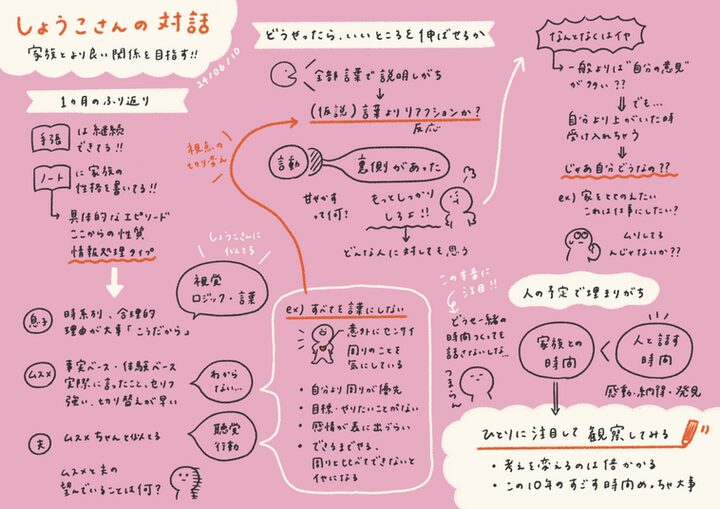 しょうこさんの対話
家族とより良い関係を目指す!!
24/06/10
1ヵ月のふり返り
手張
は継続
できてる!!
ノート
に家族の
性格を書いてる!!
具体的なエピソード
ここからの性質
情報処理タイプ
しょうこさんに
似てる
視覚
ロジック・言葉
息子
時系列、合理的
理由が大事「こうだから」
ムスメ
事実ベース・体験ベース
実際に言ったこと、セリフ
強い、切り替えが早い
わから
ない…
夫
ムスメちゃんと似てる
聴覚
行動
ムスメと夫の
望んでいることは何?
どうやったら、いいところを伸ばせるか
全部言葉で説明しがち
(仮説)言葉よりリアクションか?
反応
視点の
切り変え
言動
裏側があった
甘やかす
って何?
もっとしっかり
しろよ!!
どんな人に対しても思う
ex) すべてを言葉にしない
意外にセンサイ
周りのことを
気にしている
・自分より周りが優先
・目標・やりたいことがない
・感情が表に出づらい
・できるまでやる、
周りとくらべてできないと
イヤになる
なんとなくはイヤ
一般よりは"自分の意見"
が多い??
でも…
自分より上がいた時
受け入れちゃう
じゃあ自分どうなの??
ex) 家をととのえたい
これは仕事にしたい?
ムリしてる
んじゃないか??
この本音に
注目!!
どうせ一緒の
時間つくっても
話さないしな…
つまらん
人の予定で埋まりがち
家族との
時間
<
人と話す
時間
感動・納得・発見
ひとりに注目して観察してみる
・考えを変えるのは倍かかる
・この10年のすごす時間めっちゃ大事